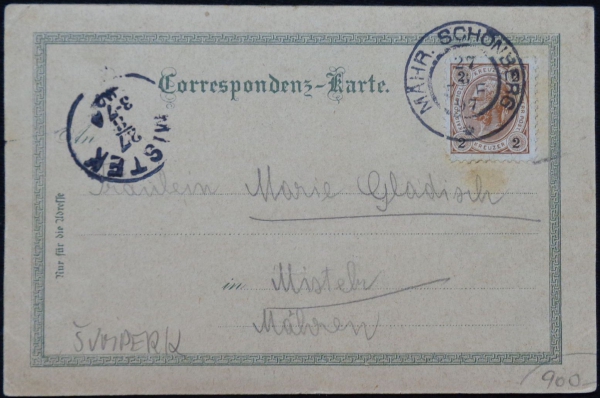 Correspondenz-Karte.
An
MÄHR. SCHÖNBERG
27
2 2
KREUZER
MISTEK
27
3-7
Fräulein Marie Gladisch
in Mistek
Mähren
Nur für die Adresse
ŠUMPERK
900